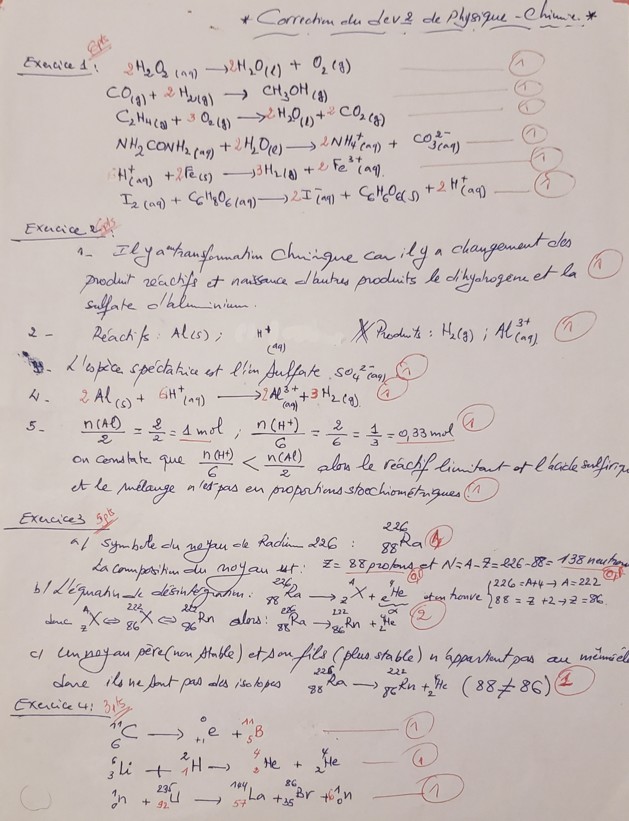 * Correction du dev 2 de Physique - Chimie. *
Exercice 1 : 6pts 2H₂O₂ (aq) → 2H₂O(l) + O₂ (g) 1
CO(g) + 2H₂(g) → CH₃OH (g) 1
C₂H₄(g) + 3O₂(g) → 2H₂O(l) + 2CO₂(g) 1
NH₂CONH₂(aq) + 2H₂O(l) → 2NH₄⁺(aq) + CO₃²⁻(aq) 1
H⁺(aq) + 2Fe(s) → 3H₂(g) + 2Fe³⁺(aq) 1
I₂(aq) + C₆H₈O₆(aq) → 2I⁻(aq) + C₆H₆O₆(s) + 2H⁺(aq) 1
Exercice 2 6pts
1- Il y a transformation Chimique car il y a changement des
produit réactifs et naissance d'autres produits le dihydrogène et la
sulfate d'aluminium. 1
2 - Réactifs : Al(s) ; H⁺(aq) Produits : H₂(g) ; Al³⁺(aq) 1
3- L'espèce spéctatrice est l'ion sulfate SO₄²⁻(aq) 1
4. 2Al(s) + 6H⁺(aq) → 2Al³⁺(aq) + 3H₂(g) 1
5- n(Al)/2 = 2/2 = 1 mol ; n(H⁺)/6 = 2/6 = 1/3 = 0,33 mol 1
on constate que n(H⁺)/6 < n(Al)/2 alors le réactif limitant et l'acide sulfirique
et le mélange n'est pas en proportions stoechiométriques. 1
Exercice 3 5pts
a) symbole du noyau de Radium 226 : ²²⁶₈₈Ra 1
La composition du noyau est : Z = 88 protons et N = A - Z = 226 - 88 = 138 neutrons
b) L'équation de désintégration : ²²⁶₈₈Ra → ᴬ_Z X + ⁴₂He α et on trouve { 226 = A+4 → A = 222
88 = Z + 2 → Z = 86
donc ᴬ_Z X ⇔ ²²²₈₆X ⇔ ²²²₈₆Rn alors : ²²⁶₈₈Ra → ²²²₈₆Rn + ⁴₂He 2
c) un noyau père (non stable) et son fils (plus stable) n'appartient pas au
donc ils ne sont pas des isotopes ²²⁶₈₈Ra → ²²²₈₆Rn + ⁴₂He (88 ≠ 86) 1
Exercice 4 : 3pts
¹¹₆C → ⁰₊₁e + ¹¹₅B 1
⁶₃Li + ²₁H → ⁴₂He + ⁴₂He 1
¹₀n + ²³⁵₉₂U → ¹⁴⁴₅₇La + ⁸⁶₃₅Br + 6¹₀n 1